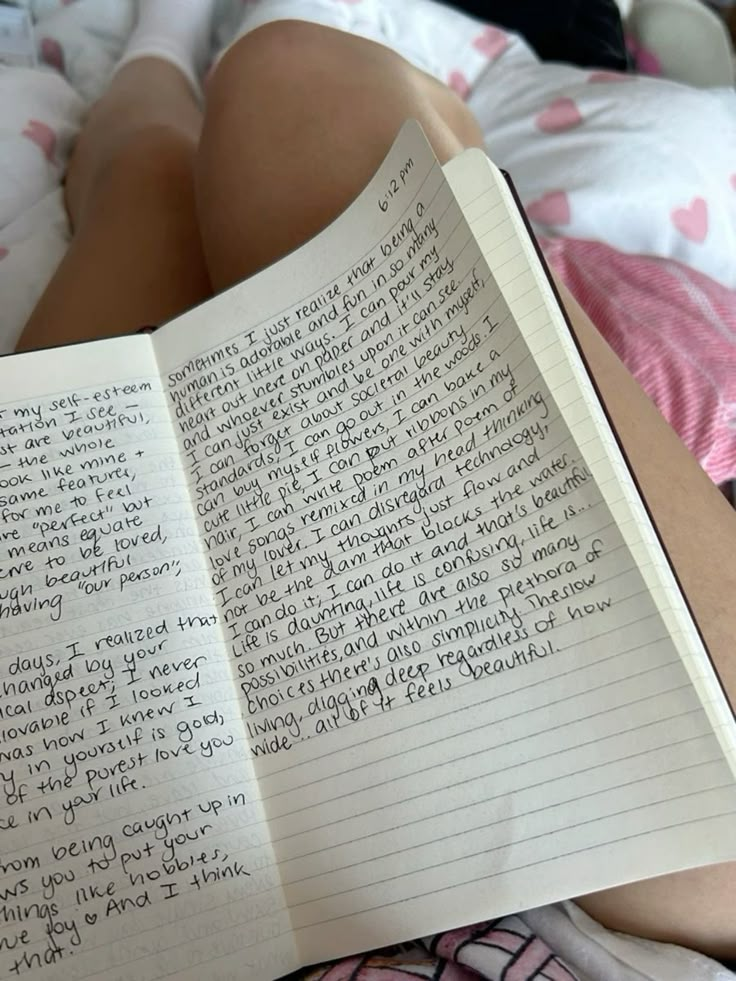 f my self-esteem
tation I see –
st are beautiful,
– the whole
ook like mine +
same features,
for me to feel
re "perfect" but
means equate
erve to be loved,
ugh beautiful
having "our person";
days, I realized that
changed by your
ical aspect; I never
lovable if I looked
was how I knew I
y in yourself is gold;
of the purest love you
ce in your life.
rom being caught up in
ws you to put your
things like hobbies,
ve joy ♡ And I think
that.
6:12 pm
sometimes I just realize that being a
human is adorable and fun in so many
different little ways. I can pour my
heart out here on paper and it'll stay
and whoever stumbles upon it can see.
I can just exist and be one with myself,
I can forget about societal beauty
standards, I can go out in the woods. I
can buy myself flowers, I can bake a
cute little pie, I can put ribbons in my
hair, I can write poem after poem of
love songs remixed in my head thinking
of my lover. I can disregard technology,
I can let my thoughts just flow and
not be the dam that blocks the water.
I can do it; I can do it and that's beautiful.
Life is daunting, life is confusing, life is...
so much. But there are also so many
possibilities, and within the plethora of
choices there's also simplicity. The slow
living, digging deep regardless of how
wide... all of it feels beautiful.